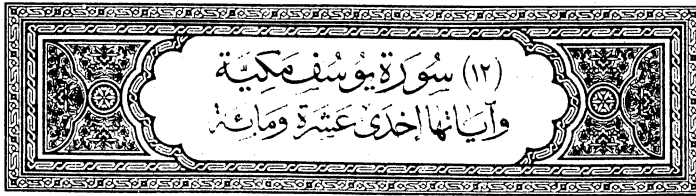 (١٢) سُورَة يُوسُف مَكِيَّة
وَآيَاتهَا إِحْدَى عَشَرَة وَمَائِة